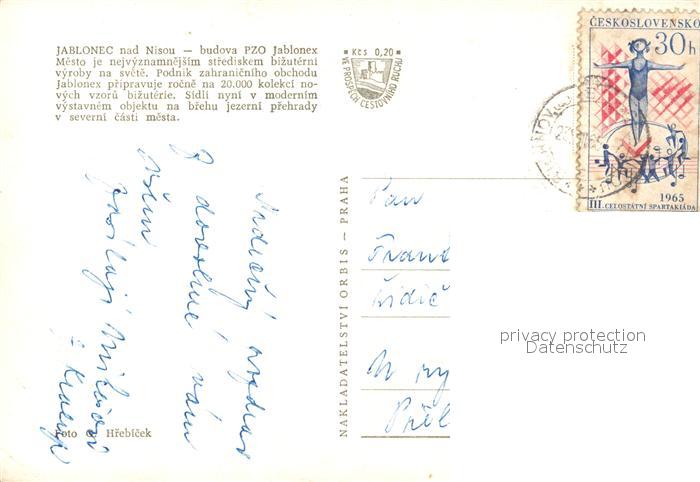 JABLONEC nad Nisou — budova PZO Jablonex
Město je nejvýznamnějším střediskem bižutérní
výroby na světě. Podnik zahraničního obchodu
Jablonex připravuje ročně na 20.000 kolekcí no-
vých vzorů bižutérie. Sídlí nyní v moderním
výstavném objektu na břehu jezerní přehrady
v severní části města.
Kčs 0,20
VE PROSPĚCH CESTOVNÍHO RUCHU
ČESKOSLOVENSKO
30h
1965
III. CELOSTÁTNÍ SPARTAKIÁDA
Srdečný pozdrav
z dovolené vám
všem
posílají
NAKLADATELSTVÍ ORBIS — PRAHA
Pan
Frant
řidič
Foto Hřebíček
privacy protection
Datenschutz